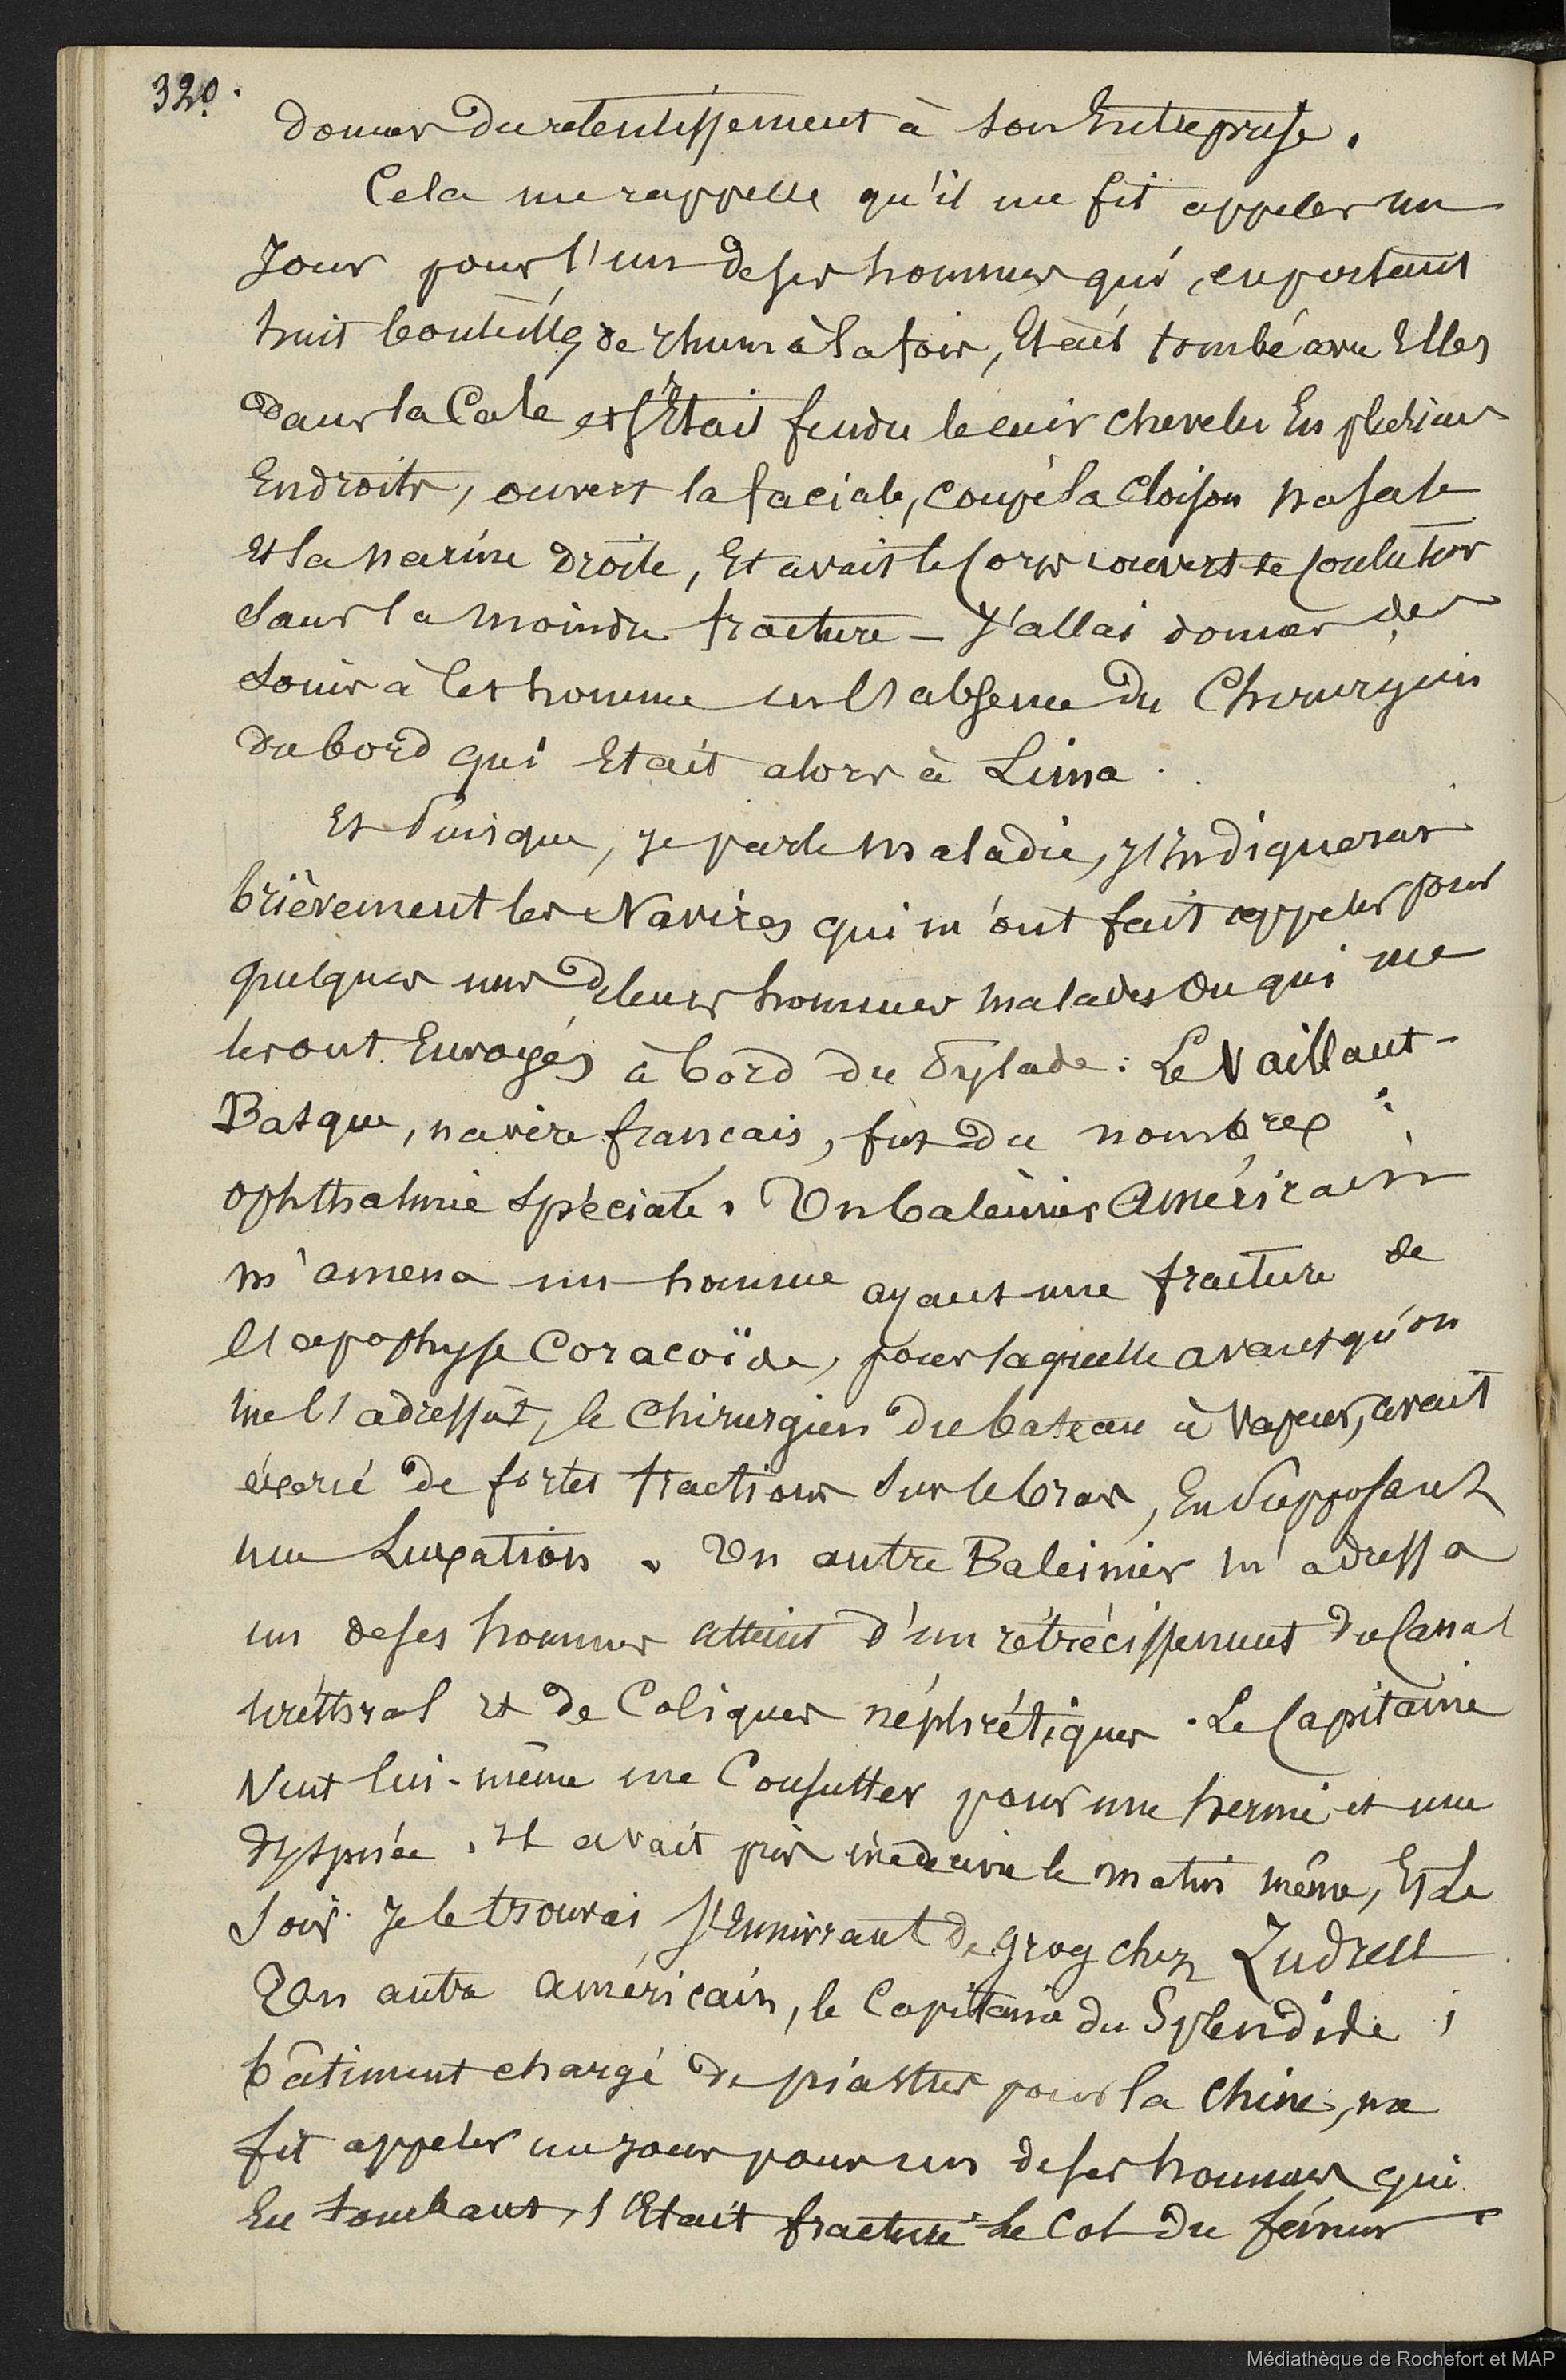 320.
donner du retentissement à son Entreprise.
Cela me rappelle qu'il me fit appeler un
Jour pour l'un de ses hommes qui, en portant
huit bouteilles de rhum à la fois, Etait tombé avec Elles
dans la Cale et s'Etait fendu le cuir chevelu En plusieurs
Endroits, ouvert la faciale, coupé la Cloison nasale
Et la narine droite, Et avait le Corps couvert de Contusions
sans la moindre fracture – J'allai donner des
soins à cet homme en l'absence du Chirurgien
du bord qui Etait alors à Lima.
Et Puisque, je parle maladie, j'Indiquerai
brièvement les Navires qui m'ont fait appeler pour
quelques uns de leurs hommes malades ou qui me
les ont Envoyés à bord du Pylade : Le Vaillant-
Basque, navire francais, fut du nombre :
ophthalmie spéciale. Un baleinier Américain
m'amena un homme ayant une fracture de
l'apophyse Coracoïde, pour laquelle avant qu'on
me l'adressât, le Chirurgien du bateau à vapeur, avait
éxercé de fortes tractions sur le bras, En supposant
une Luxation. Un autre Baleinier m'adressa
un de ses hommes atteint d'un rétrécissement du Canal
uréthral et de Coliques néphrétiques. Le Capitaine
Vint lui-même me Consulter pour une hernie et une
dyspnée. Il avait pris médecine le matin même, Et Le
Soir Je le trouvai s'Ennivrant de grog chez
Un autre américain, le Capitaine du Splendide,
bâtiment chargé de piastres pour la Chine, me
fit appeler un jour pour un de ses hommes qui
En tombant, s'Etait fracturé le Col du fémur
Médiathèque de Rochefort et MAP